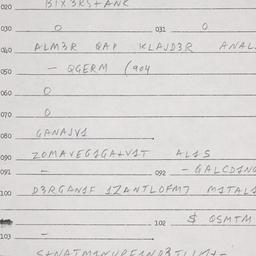 020 BIX3RS+ANK
030 0 031 0
040 ALM3R QAP KLAJD3R ANAL
050 - QGERM (904
060 0
070 0
080 GANAJV1
090 ZOMAVEG1GA+V1T AL1S
091 - 092 - GALCD1N
100 D3RGAN1F 1ZANTLOFM7 M1TAL
102 $ QSMTM
103 -